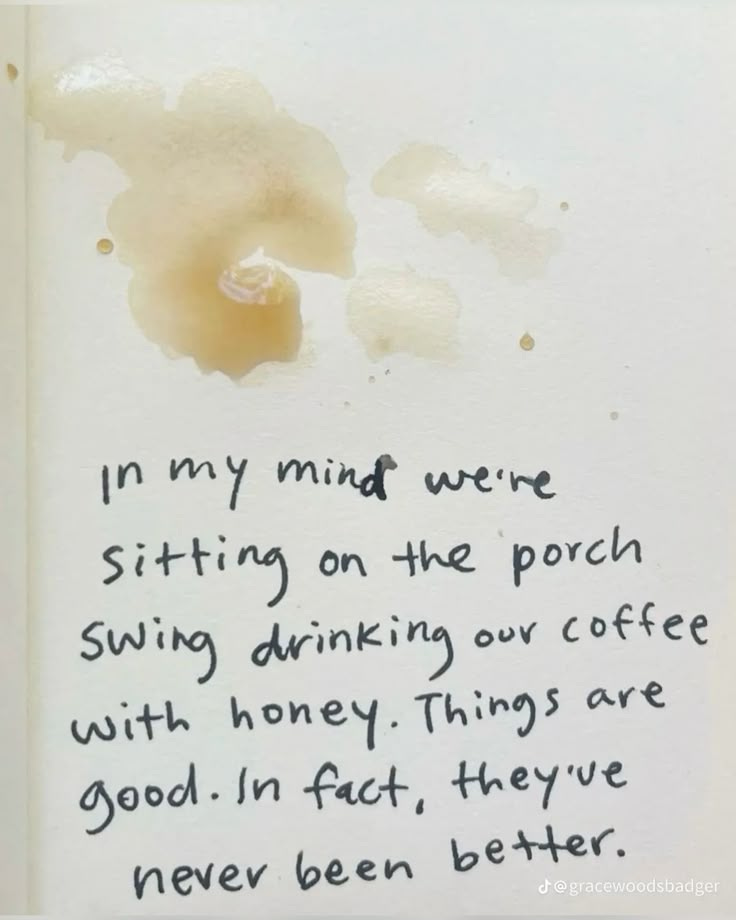 In my mind we're
sitting on the porch
swing drinking our coffee
with honey. Things are
good. In fact, they've
never been better.
@gracewoodsbadger